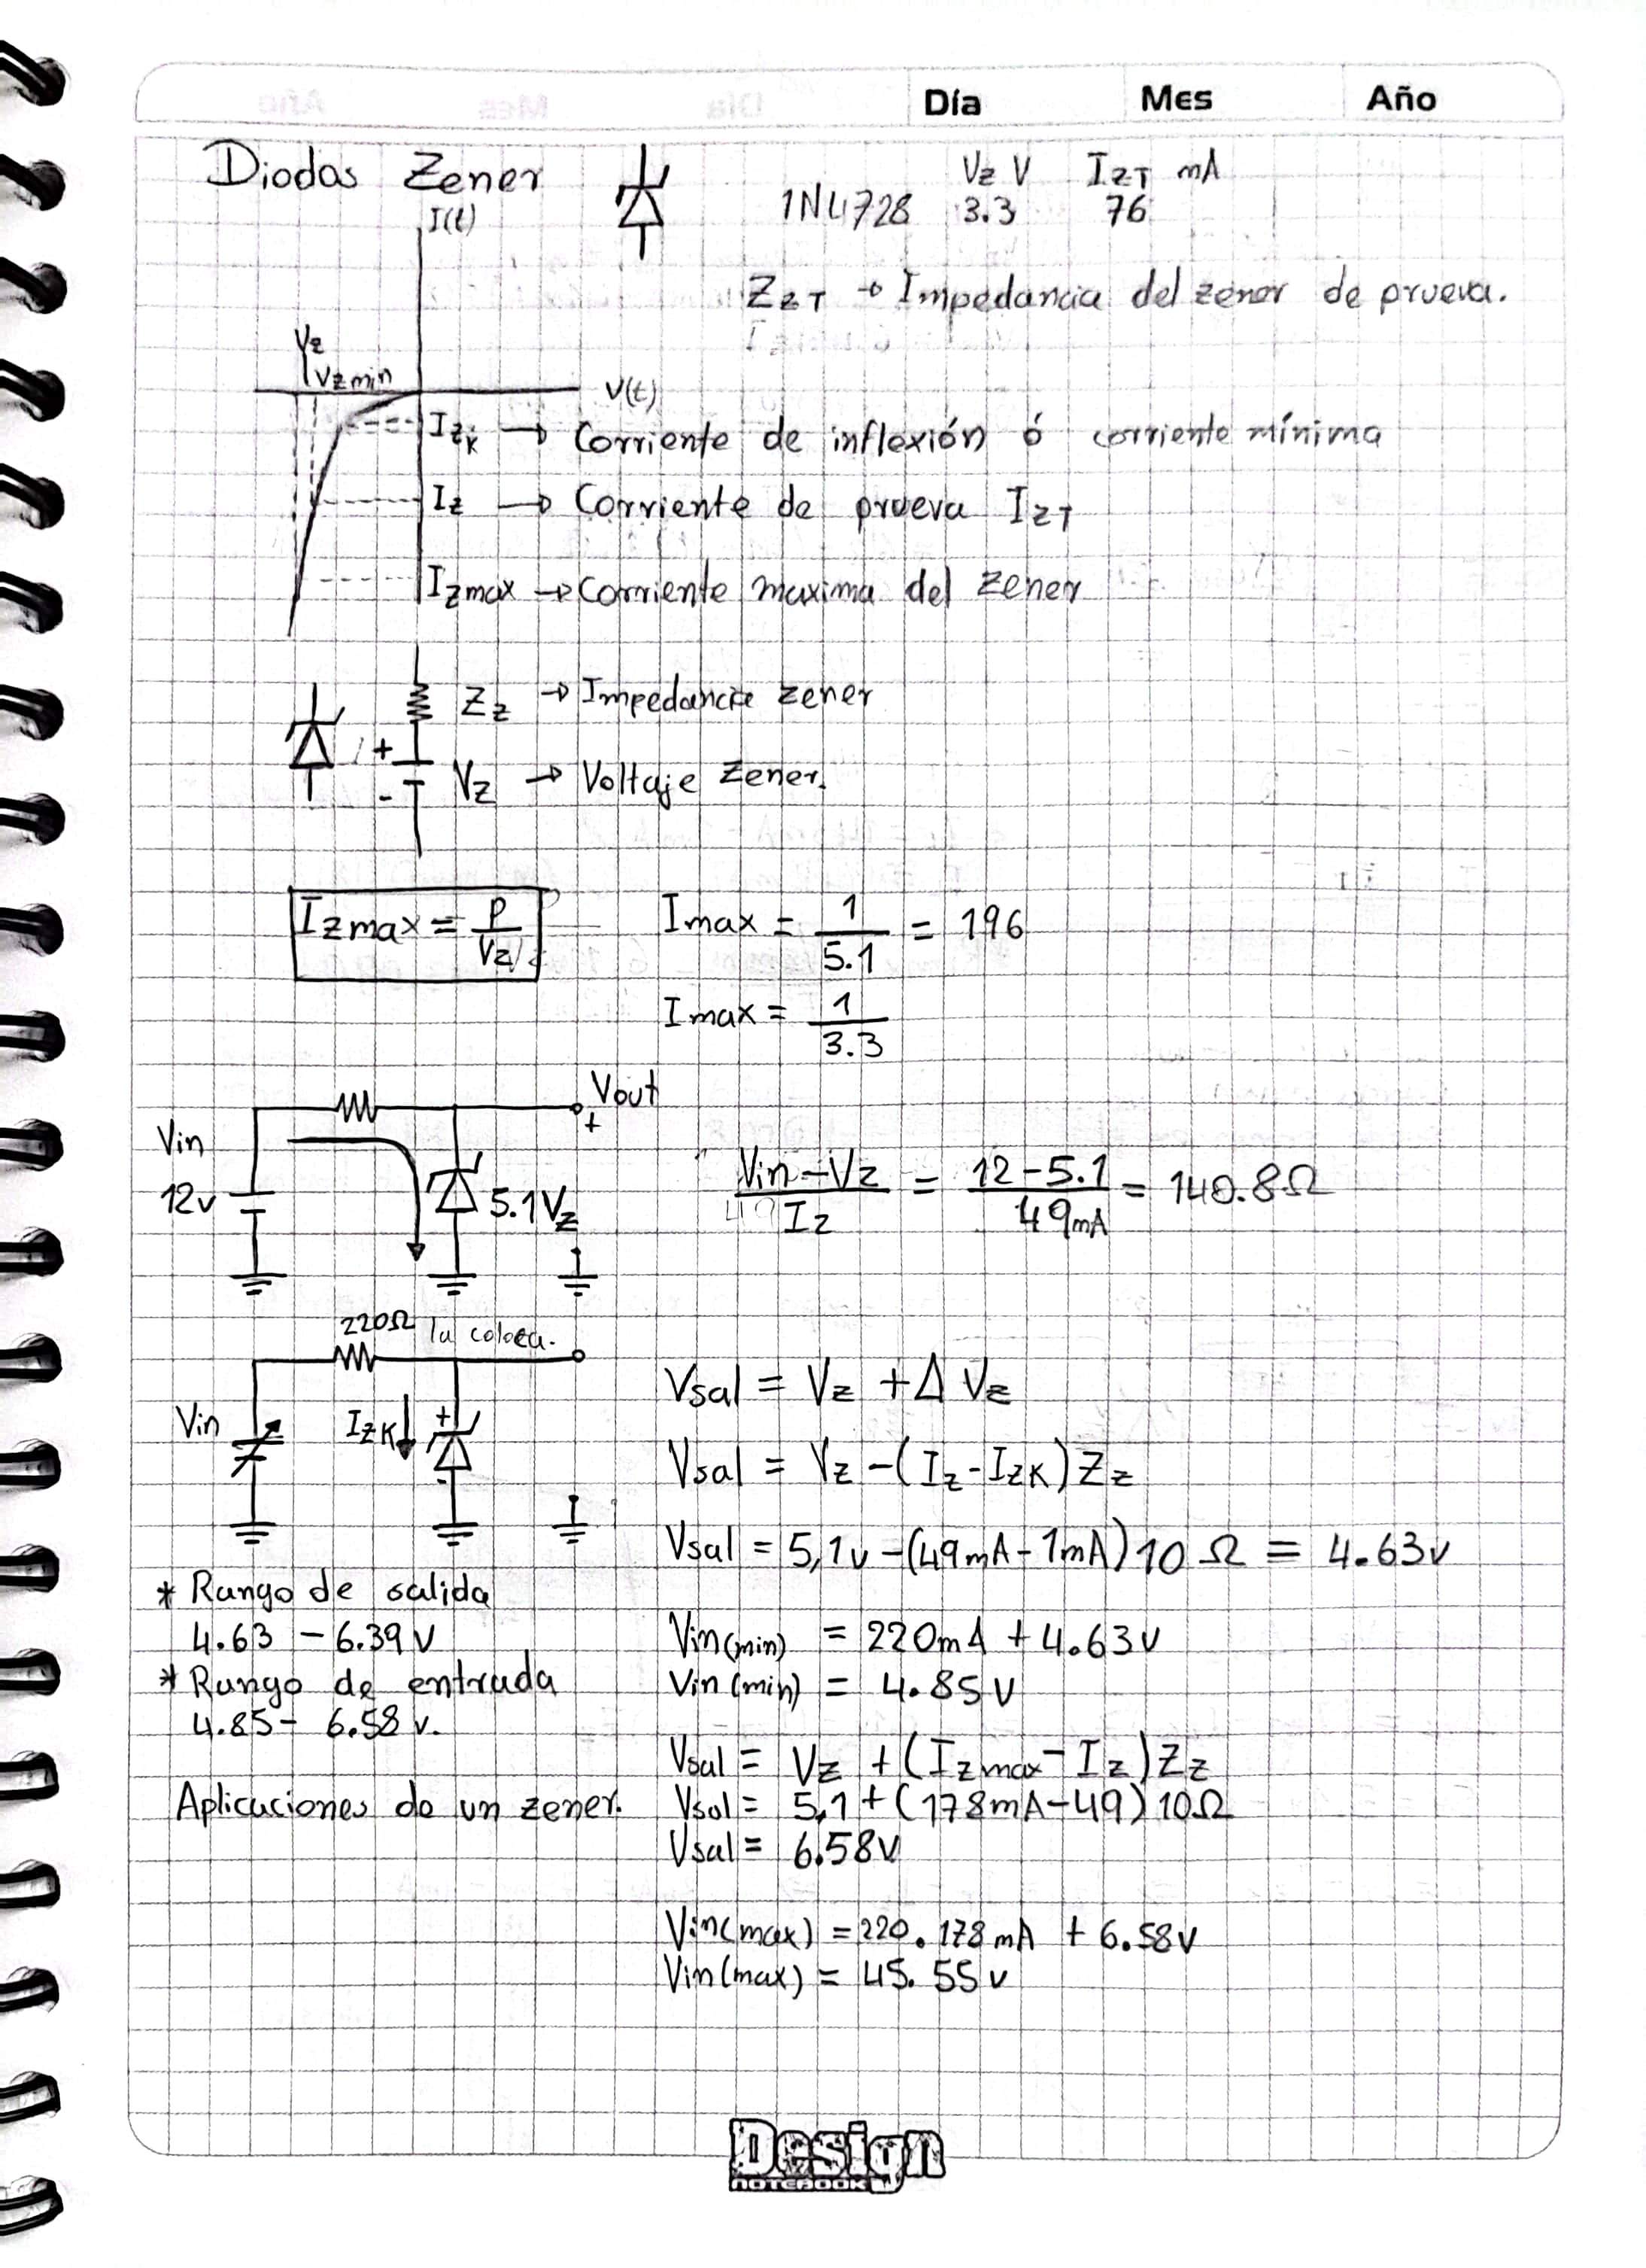 Día Mes Año
Diodos Zener
Vz V IzT mA
1N4728 3.3 76
I(t)
ZzT → Impedancia del zener de prueva.
Vz
Vz min
V(t)
Izk → Corriente de inflexión ó corriente mínima
Iz → Corriente de prueva IzT
Izmax → Corriente maxima del zener
Zz → Impedancia zener
+
- Vz → Voltaje Zener.
Izmax = P/Vz
Imax = 1/5.1 = 196
Imax = 1/3.3
Vout
+
Vin
12v
5.1Vz
Vin-Vz/Iz = 12-5.1/49mA = 140.8Ω
220Ω la coloca.
Vin
IzK
+
-
Vsal = Vz + Δ Vz
Vsal = Vz - (Iz - IzK) Zz
Vsal = 5,1v - (49mA - 1mA) 10 Ω = 4.63v
* Rango de salida
4.63 - 6.39 V
* Rango de entrada
4.85 - 6.58 v.
Vin(min) = 220mA + 4.63v
Vin(min) = 4.85 V
Vsal = Vz + (Izmax - Iz) Zz
Vsal = 5,1 + (178mA - 49) 10Ω
Vsal = 6.58v
Aplicaciones de un zener.
Vin(max) = 220 . 178mA + 6.58v
Vin(max) = 45.55v
Design
NOTEBOOK